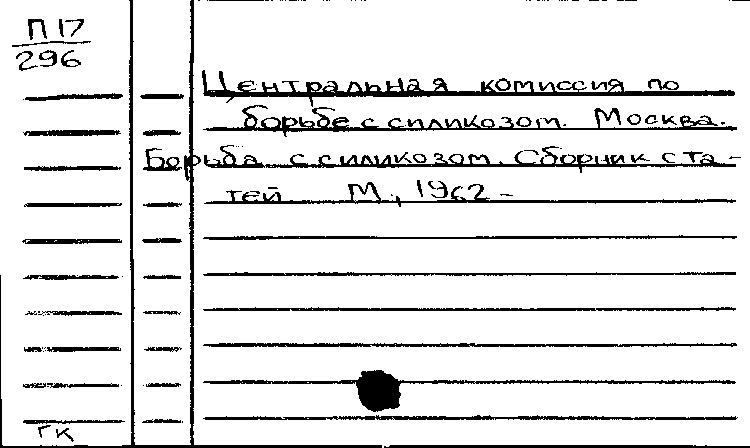 П 17
296
Центральная комиссия по
борьбе с силикозом. Москва.
Борьба с силикозом. Сборник ста-
тей М., 1962 -
ГК